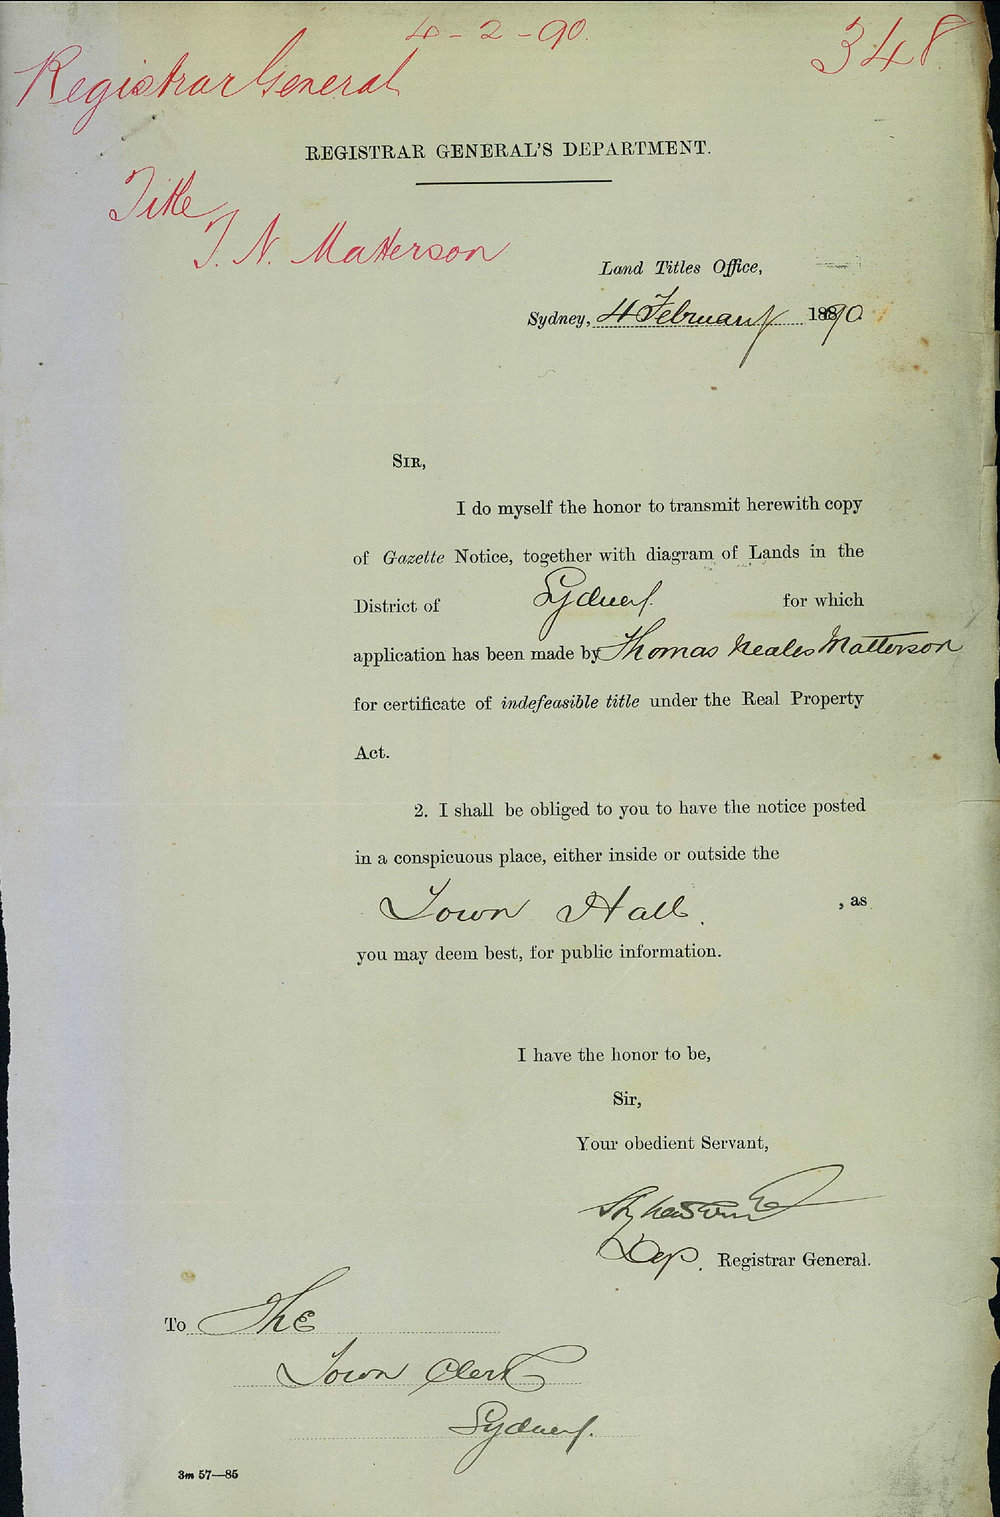 4-2-90.
348
Registrar General
REGISTRAR GENERAL'S DEPARTMENT.
Title
T. N. Matterson
Land Titles Office,
Sydney, 4 February 18890.
SIR,
I do myself the honor to transmit herewith copy
of Gazette Notice, together with diagram of Lands in the
District of Sydney for which
application has been made by Thomas Neales Matterson
for certificate of indefeasible title under the Real Property
Act.
2. I shall be obliged to you to have the notice posted
in a conspicuous place, either inside or outside the
Town Hall. , as
you may deem best, for public information.
I have the honor to be,
Sir,
Your obedient Servant,
Dep. Registrar General.
To The
Town Clerk
Sydney.
3m 57—85